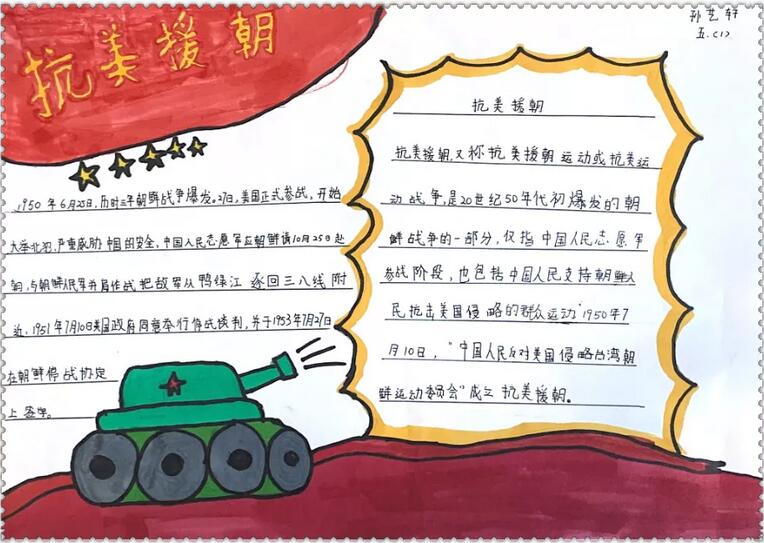 抗美援朝
孙艺轩
五.(1)
1950年6月25日,历时三年朝鲜战争爆发。27日,美国正式参战,开始
大举北犯,严重威胁中国的安全,中国人民志愿军应朝鲜请10月25日赴
朝,与朝鲜人民军并肩作战把敌军从鸭绿江逐回三八线附
近,1951年7月10日美国政府同意举行停战谈判,并于1953年7月27日
在朝鲜停战协定
上签字。
抗美援朝
抗美援朝,又称抗美援朝运动或抗美运
动战争,是20世纪50年代初爆发的朝
鲜战争的一部分,仅指中国人民志愿军
参战阶段,也包括中国人民支持朝鲜人
民抗击美国侵略的群众运动"1950年7
月10日,"中国人民反对美国侵略台湾朝
鲜运动委员会"成立抗美援朝。